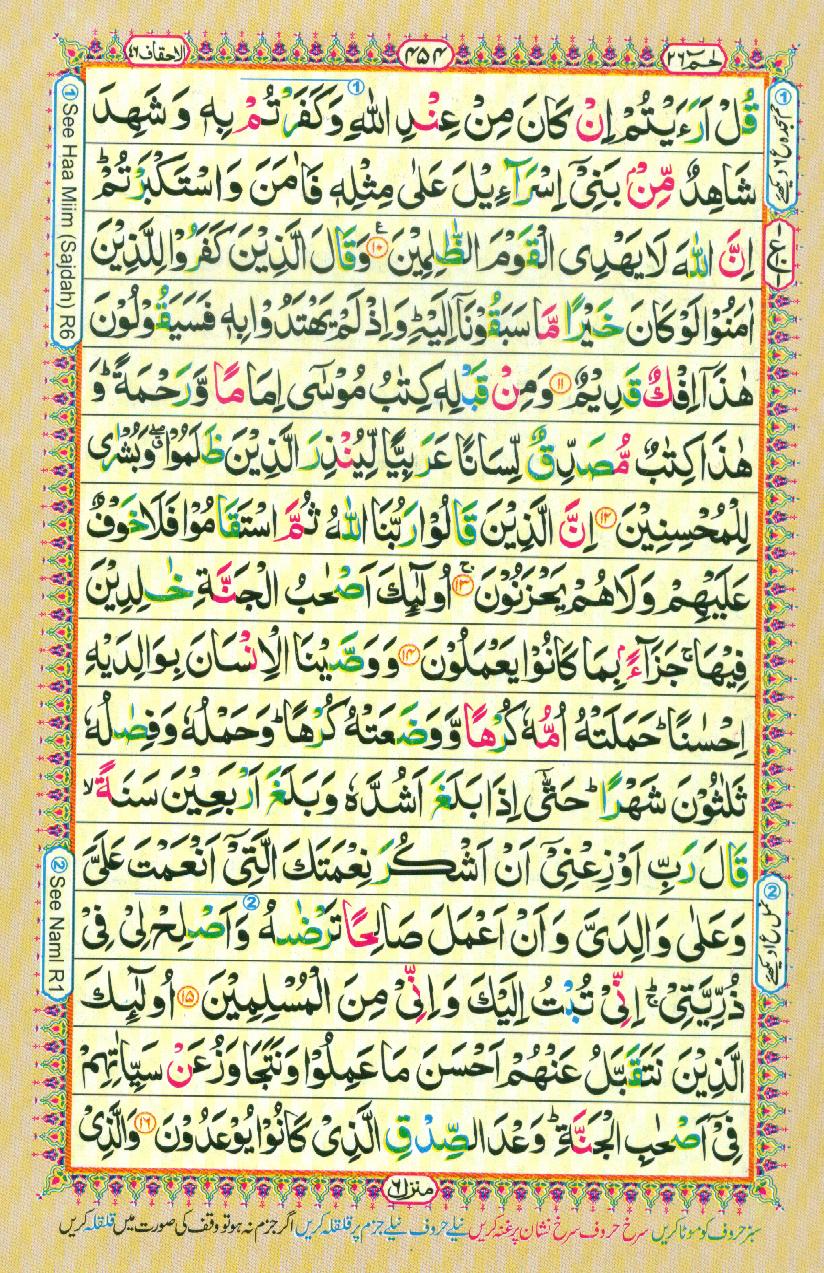 الاحقاف ٤٦
٤٥٤
حٰمٓ ٢٦
قُلْ اَرَءَيْتُمْ اِنْ كَانَ مِنْ عِنْدِ اللّٰهِ وَكَفَرْتُمْ بِهٖ وَشَهِدَ
شَاهِدٌ مِّنْۢ بَنِيْٓ اِسْرَآءِيْلَ عَلٰى مِثْلِهٖ فَاٰمَنَ وَاسْتَكْبَرْتُمْ ؕ
اِنَّ اللّٰهَ لَا يَهْدِى الْقَوْمَ الظّٰلِمِيْنَ ۱۰ وَقَالَ الَّذِيْنَ كَفَرُوْا لِلَّذِيْنَ
اٰمَنُوْا لَوْ كَانَ خَيْرًا مَّا سَبَقُوْنَآ اِلَيْهِ ؕ وَاِذْ لَمْ يَهْتَدُوْا بِهٖ فَسَيَقُوْلُوْنَ
هٰذَآ اِفْكٌ قَدِيْمٌ ۱۱ وَمِنْ قَبْلِهٖ كِتٰبُ مُوْسٰٓى اِمَامًا وَّرَحْمَةً ؕ وَ
هٰذَا كِتٰبٌ مُّصَدِّقٌ لِّسَانًا عَرَبِيًّا لِّيُنْذِرَ الَّذِيْنَ ظَلَمُوْا ۖ وَبُشْرٰى
لِلْمُحْسِنِيْنَ ۱۲ اِنَّ الَّذِيْنَ قَالُوْا رَبُّنَا اللّٰهُ ثُمَّ اسْتَقَامُوْا فَلَا خَوْفٌ
عَلَيْهِمْ وَلَا هُمْ يَحْزَنُوْنَ ۱۳ اُولٰٓئِكَ اَصْحٰبُ الْجَنَّةِ خٰلِدِيْنَ
فِيْهَا ۚ جَزَآءًۢ بِمَا كَانُوْا يَعْمَلُوْنَ ۱۴ وَوَصَّيْنَا الْاِنْسَانَ بِوَالِدَيْهِ
اِحْسٰنًا ؕ حَمَلَتْهُ اُمُّهٗ كُرْهًا وَّوَضَعَتْهُ كُرْهًا ؕ وَحَمْلُهٗ وَفِصٰلُهٗ
ثَلٰثُوْنَ شَهْرًا ؕ حَتّٰٓى اِذَا بَلَغَ اَشُدَّهٗ وَبَلَغَ اَرْبَعِيْنَ سَنَةً ۙ
قَالَ رَبِّ اَوْزِعْنِيْٓ اَنْ اَشْكُرَ نِعْمَتَكَ الَّتِيْٓ اَنْعَمْتَ عَلَيَّ
وَعَلٰى وَالِدَيَّ وَاَنْ اَعْمَلَ صَالِحًا تَرْضٰىهُ وَاَصْلِحْ لِيْ فِيْ
ذُرِّيَّتِيْ ؕۚ اِنِّيْ تُبْتُ اِلَيْكَ وَاِنِّيْ مِنَ الْمُسْلِمِيْنَ ۱۵ اُولٰٓئِكَ
الَّذِيْنَ نَتَقَبَّلُ عَنْهُمْ اَحْسَنَ مَا عَمِلُوْا وَنَتَجَاوَزُ عَنْ سَيِّاٰتِهِمْ
فِيْٓ اَصْحٰبِ الْجَنَّةِ ؕ وَعْدَ الصِّدْقِ الَّذِيْ كَانُوْا يُوْعَدُوْنَ ۱۶ وَالَّذِيْ
① See Haa Miim (Sajdah) R6
② See Naml R1
منزل ٦
سبز حروف کو موٹا کریں سرخ حروف سرخ نشان پر غنہ کریں نیلے حروف نیلے جزم پر قلقلہ کریں اگر جزم نہ ہو تو وقف کی صورت میں قلقلہ کریں